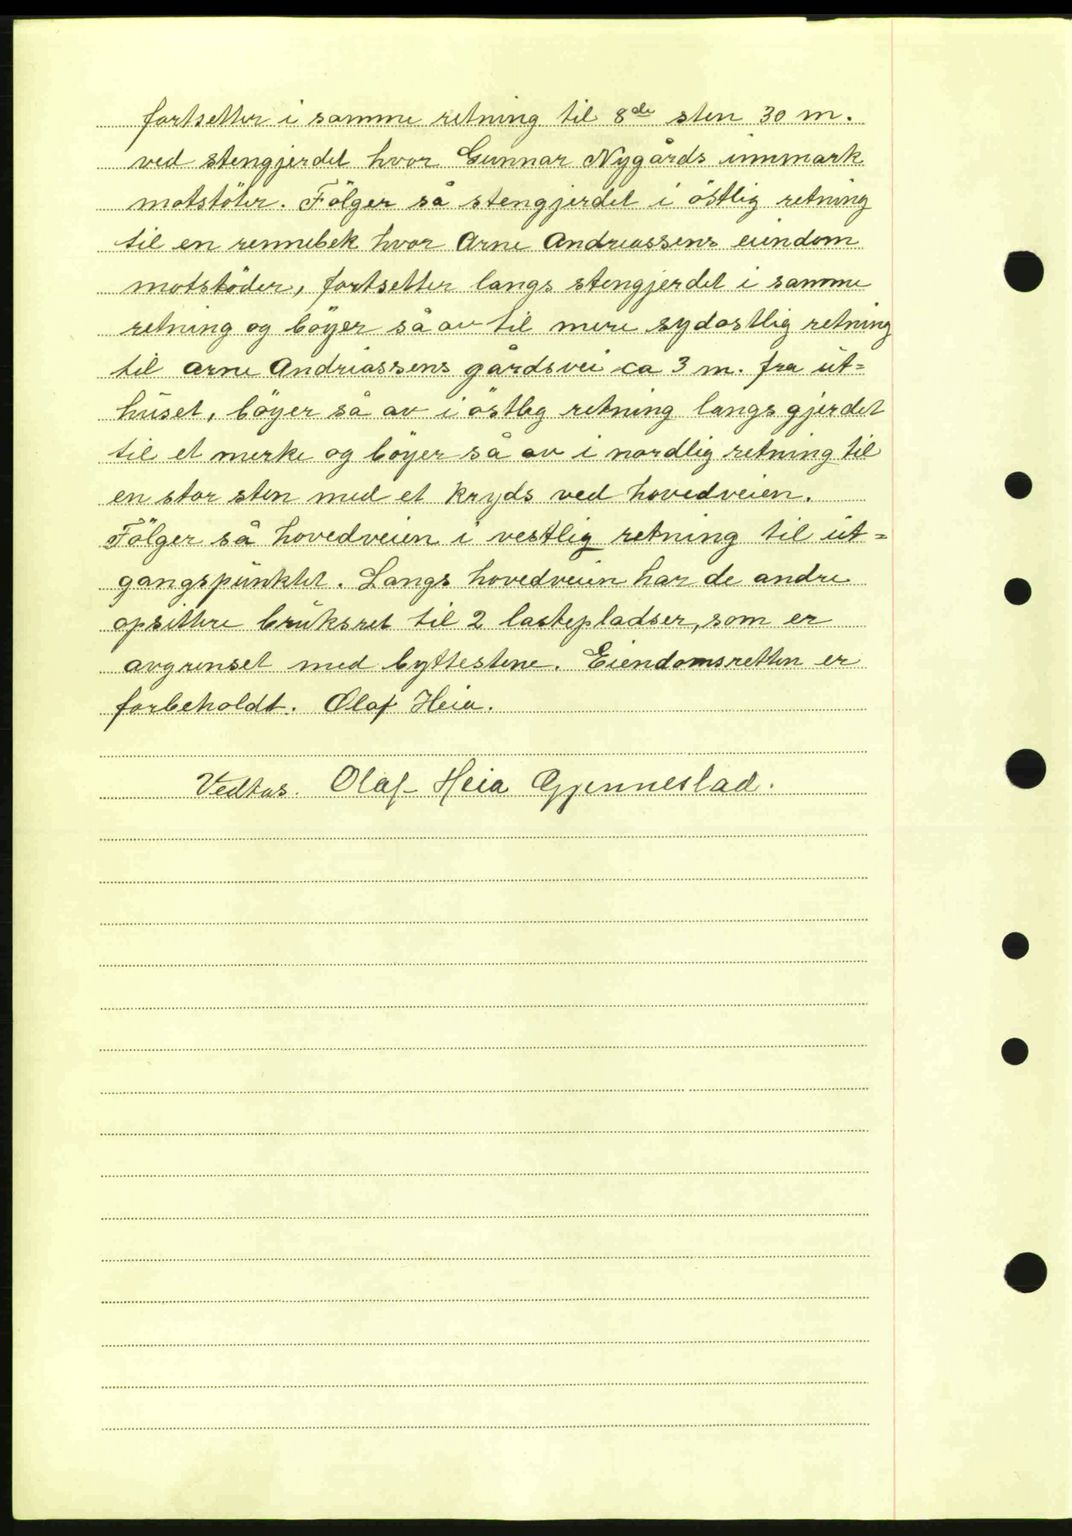 fortsetter i samme retning til 8de sten 30 m.
ved stengjerdet hvor Gunnar Nygårds innmark
motstöter. Fölger så stengjerdet i östlig retning
til en rennebek hvor Arne Andreassens eiendom
motstöder, fortsetter langs stengjerdet i samme
retning og böyer så av til mere sydostlig retning
til Arne Andriassens gårdsvei ca 3 m. fra ut=
huset, böyer så av i östlig retning langs gjerdet
til et merke og böyer så av i nordlig retning til
en stor sten med et kryds ved hovedveien.
Fölger så hovedveien i vestlig retning til ut=
gangspunktet. Langs hovedveien har de andre
opsittere bruksret til 2 lastepladser, som er
avgrenset med byttestene. Eiendomsretten er
forbeholdt. Olaf Heia.
Vedtas. Olaf Heia Gjennestad.